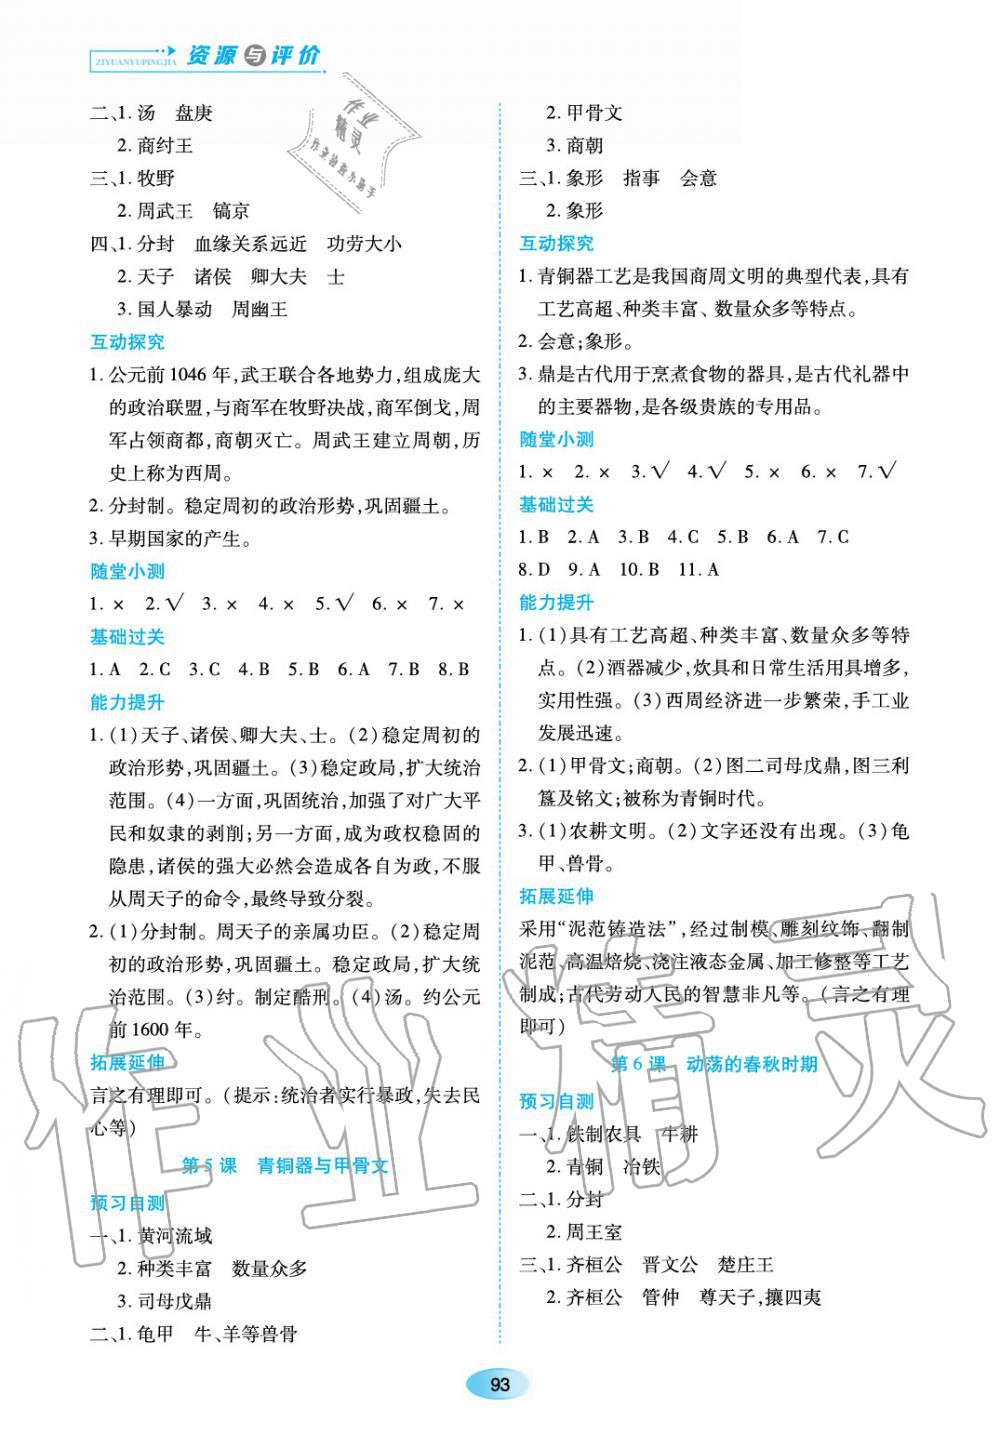 ZIYUANYUPINGJIA 资源与评价
作业
精灵
作业检查小助手
二、1. 汤 盘庚
2. 商纣王
三、1. 牧野
2. 周武王 镐京
四、1. 分封 血缘关系远近 功劳大小
2. 天子 诸侯 卿大夫 士
3. 国人暴动 周幽王
互动探究
1. 公元前 1046 年,武王联合各地势力,组成庞大
的政治联盟,与商军在牧野决战,商军倒戈,周
军占领商都,商朝灭亡。周武王建立周朝,历
史上称为西周。
2. 分封制。稳定周初的政治形势,巩固疆土。
3. 早期国家的产生。
随堂小测
1. × 2. √ 3. × 4. × 5. √ 6. × 7. ×
基础过关
1. A 2. C 3. C 4. B 5. B 6. A 7. B 8. B
能力提升
1. (1)天子、诸侯、卿大夫、士。(2)稳定周初的
政治形势,巩固疆土。(3)稳定政局,扩大统治
范围。(4)一方面,巩固统治,加强了对广大平
民和奴隶的剥削;另一方面,成为政权稳固的
隐患,诸侯的强大必然会造成各自为政,不服
从周天子的命令,最终导致分裂。
2. (1)分封制。周天子的亲属功臣。(2)稳定周
初的政治形势,巩固疆土。稳定政局,扩大统
治范围。(3)纣。制定酷刑。(4)汤。约公元
前 1600 年。
拓展延伸
言之有理即可。(提示:统治者实行暴政,失去民
心等)
第 5 课 青铜器与甲骨文
预习自测
一、1. 黄河流域
2. 种类丰富 数量众多
3. 司母戊鼎
二、1. 龟甲 牛、羊等兽骨
2. 甲骨文
3. 商朝
三、1. 象形 指事 会意
2. 象形
互动探究
1. 青铜器工艺是我国商周文明的典型代表,具有
工艺高超、种类丰富、数量众多等特点。
2. 会意;象形。
3. 鼎是古代用于烹煮食物的器具,是古代礼器中
的主要器物,是各级贵族的专用品。
随堂小测
1. × 2. × 3. √ 4. √ 5. × 6. × 7. √
基础过关
1. B 2. A 3. B 4. C 5. B 6. A 7. C
8. D 9. A 10. B 11. A
能力提升
1. (1)具有工艺高超、种类丰富、数量众多等特
点。(2)酒器减少,炊具和日常生活用具增多,
实用性强。(3)西周经济进一步繁荣,手工业
发展迅速。
2. (1)甲骨文;商朝。(2)图二司母戊鼎,图三利
簋及铭文;被称为青铜时代。
3. (1)农耕文明。(2)文字还没有出现。(3)龟
甲、兽骨。
拓展延伸
采用“泥范铸造法”,经过制模、雕刻纹饰、翻制
泥范、高温焙烧、浇注液态金属、加工修整等工艺
制成;古代劳动人民的智慧非凡等。(言之有理
即可)
第 6 课 动荡的春秋时期
预习自测
一、1. 铁制农具 牛耕
2. 青铜 冶铁
二、1. 分封
2. 周王室
三、1. 齐桓公 晋文公 楚庄王
2. 齐桓公 管仲 尊天子,攘四夷
作业精灵
93